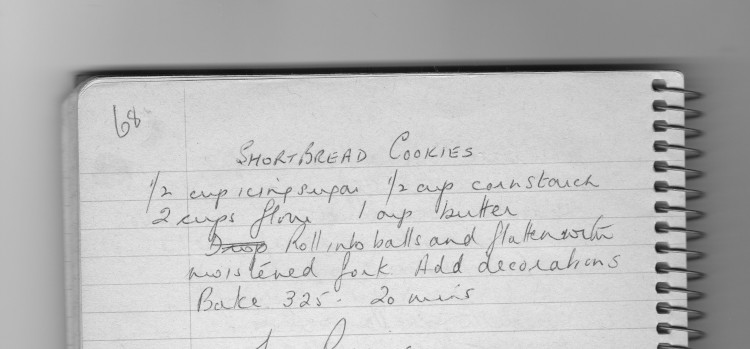 68
SHORTBREAD COOKIES
1/2 cup icing sugar 1/2 cup cornstarch
2 cups flour 1 cup butter
Drop Roll into balls and flatten with
moistened fork Add decorations
Bake 325. 20 mins